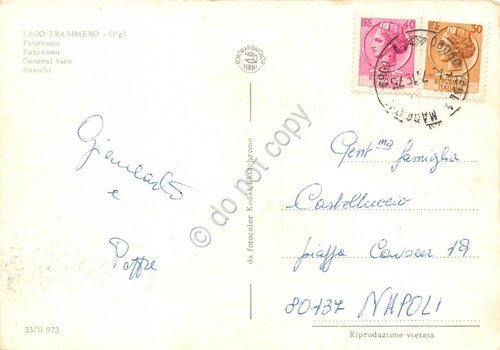 LAGO TRASIMENO - (Pg)
Panorama
Panorama
General view
Ansicht
TERNI
LIRE 40
30
ITALIA
Giancarlo
e
Gent.ma famiglia
Castelluccio
piazza Cavour 19
80137 NAPOLI
da fotocolor Kodak Ektachrome
do not copy
33/II 973
Riproduzione vietata